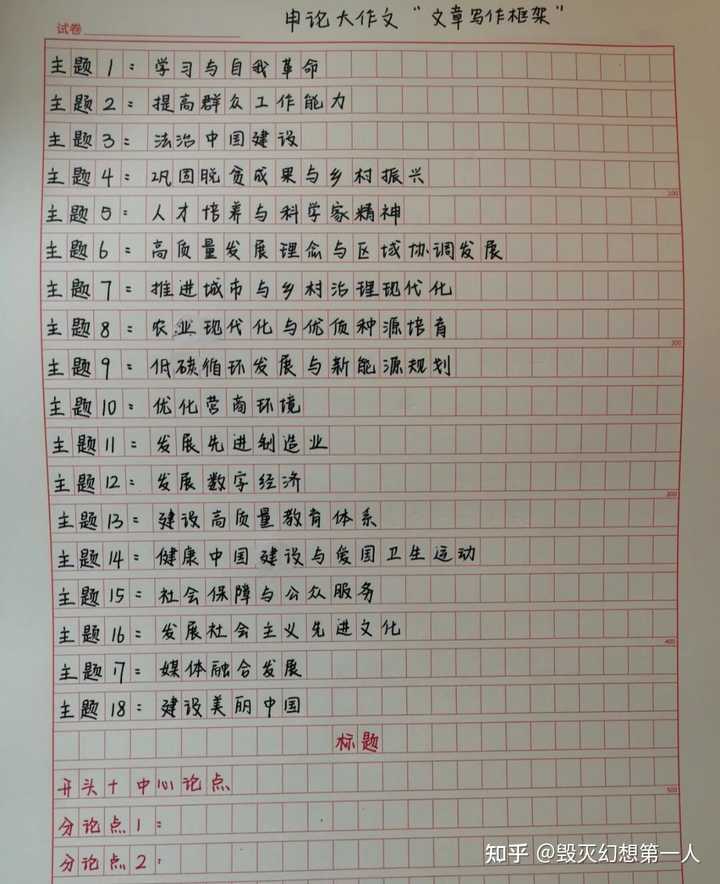 申论大作文“文章写作框架”
试卷
主题1：学习与自我革命
主题2：提高群众工作能力
主题3：法治中国建设
主题4：巩固脱贫成果与乡村振兴
100
主题5：人才培养与科学家精神
主题6：高质量发展理念与区域协调发展
主题7：推进城市与乡村治理现代化
主题8：农业现代化与优质种源培育
200
主题9：低碳循环发展与新能源规划
主题10：优化营商环境
主题11：发展先进制造业
主题12：发展数字经济
300
主题13：建设高质量教育体系
主题14：健康中国建设与爱国卫生运动
主题15：社会保障与公众服务
主题16：发展社会主义先进文化
400
主题17：媒体融合发展
主题18：建设美丽中国
标题
开头+中心论点
500
分论点1：
分论点2：
知乎 @毁灭幻想第一人